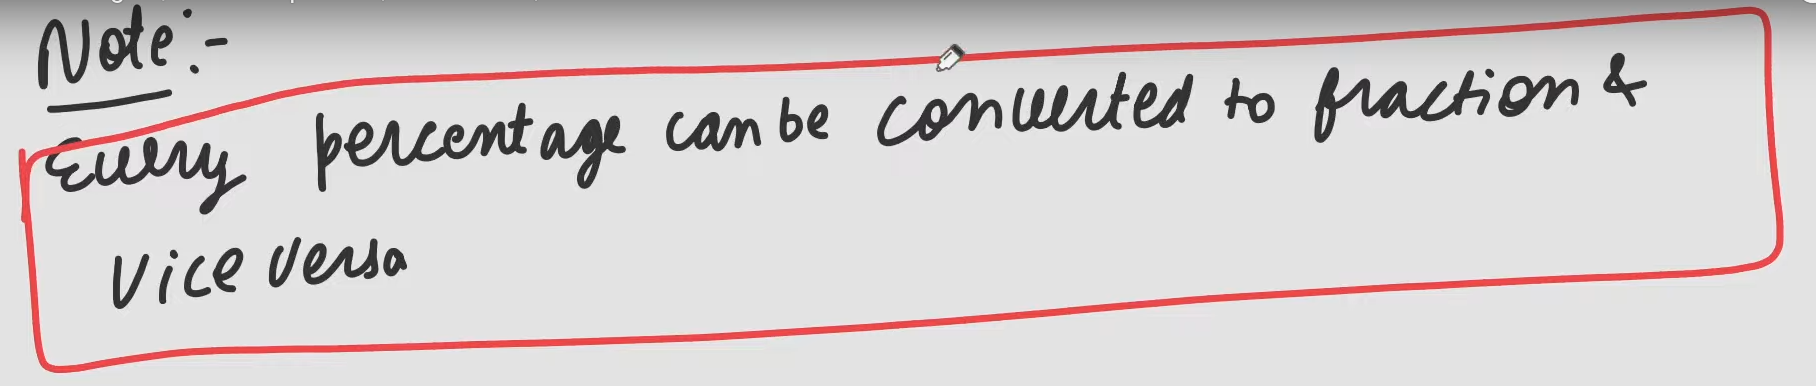 Note:-
Every percentage can be converted to fraction &
Vice versa